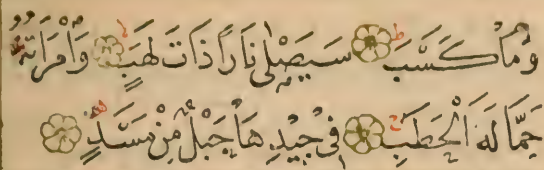 وَمَا كَسَبَ سَيَصْلٰى نَارًا ذَاتَ لَهَبٍ وَامْرَاَتُهُ
حَمَّالَةَ الْحَطَبِ فِي جِيدِهَا حَبْلٌ مِنْ مَسَدٍ